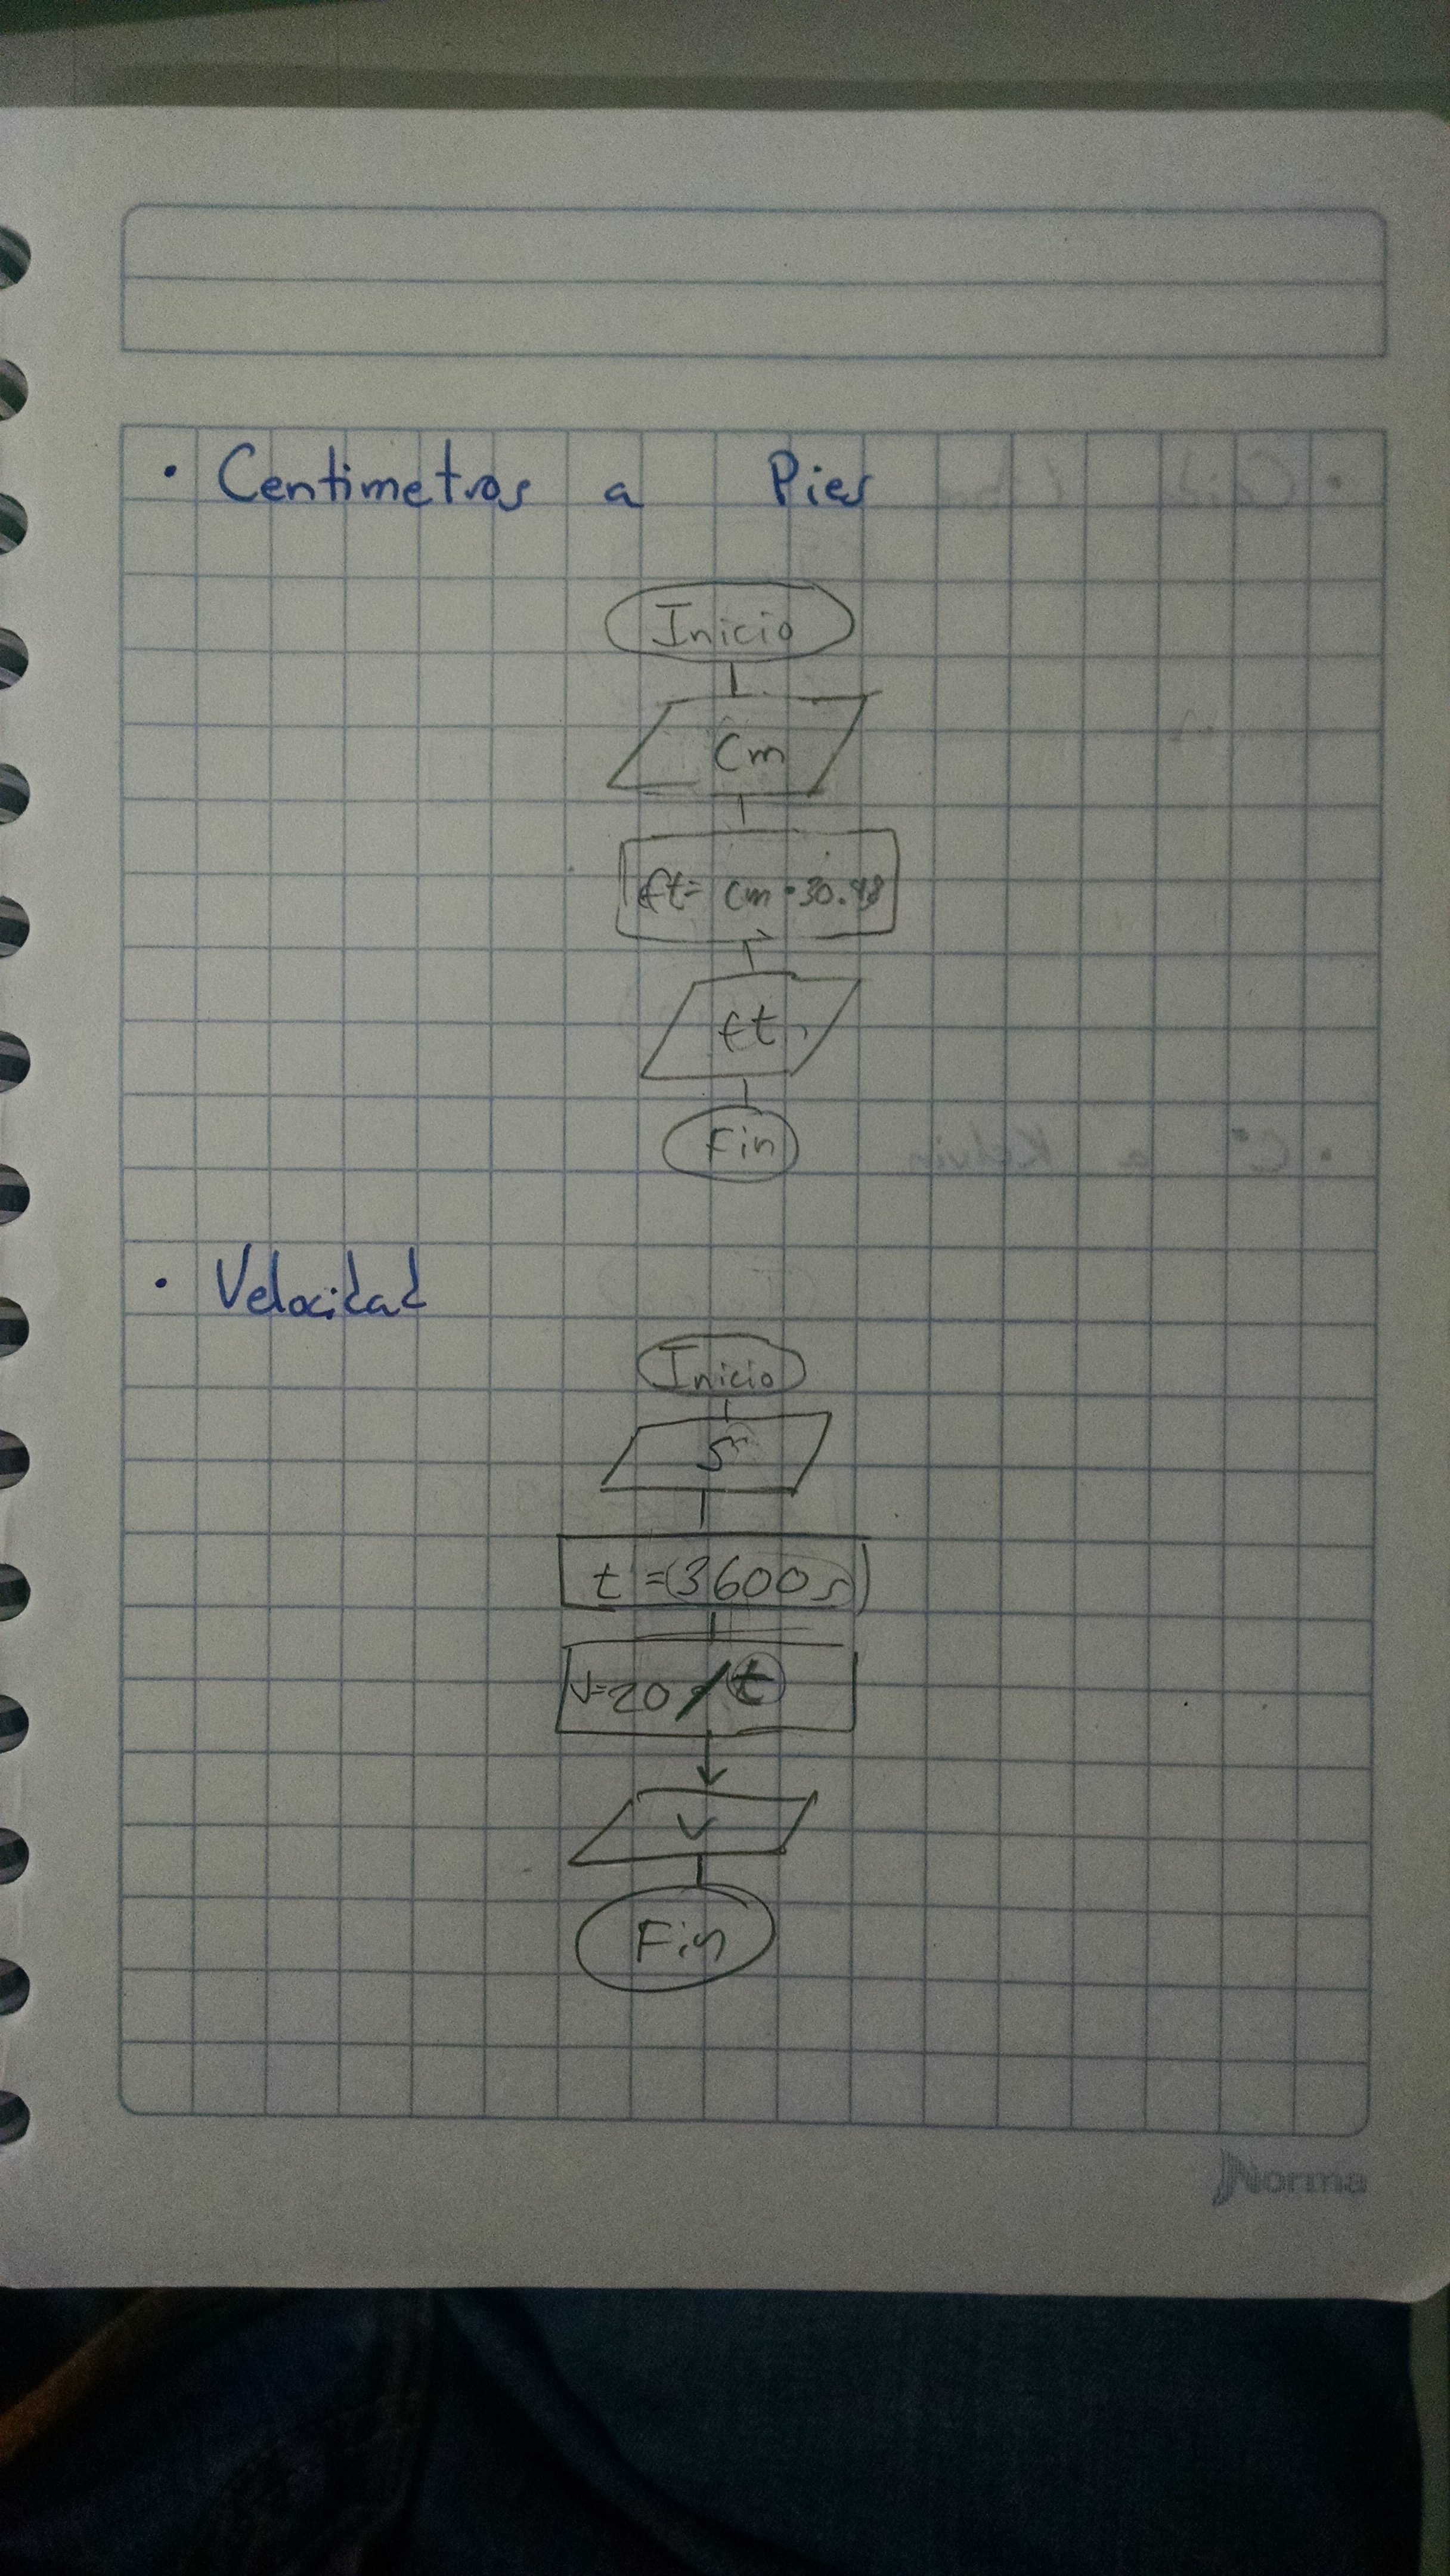 · Centimetros a Pies
Inicio
Cm
ft= cm · 30.48
ft
Fin
· Velocidad
Inicio
s
t =(3600s)
v=20 / t
v
Fin
Norma